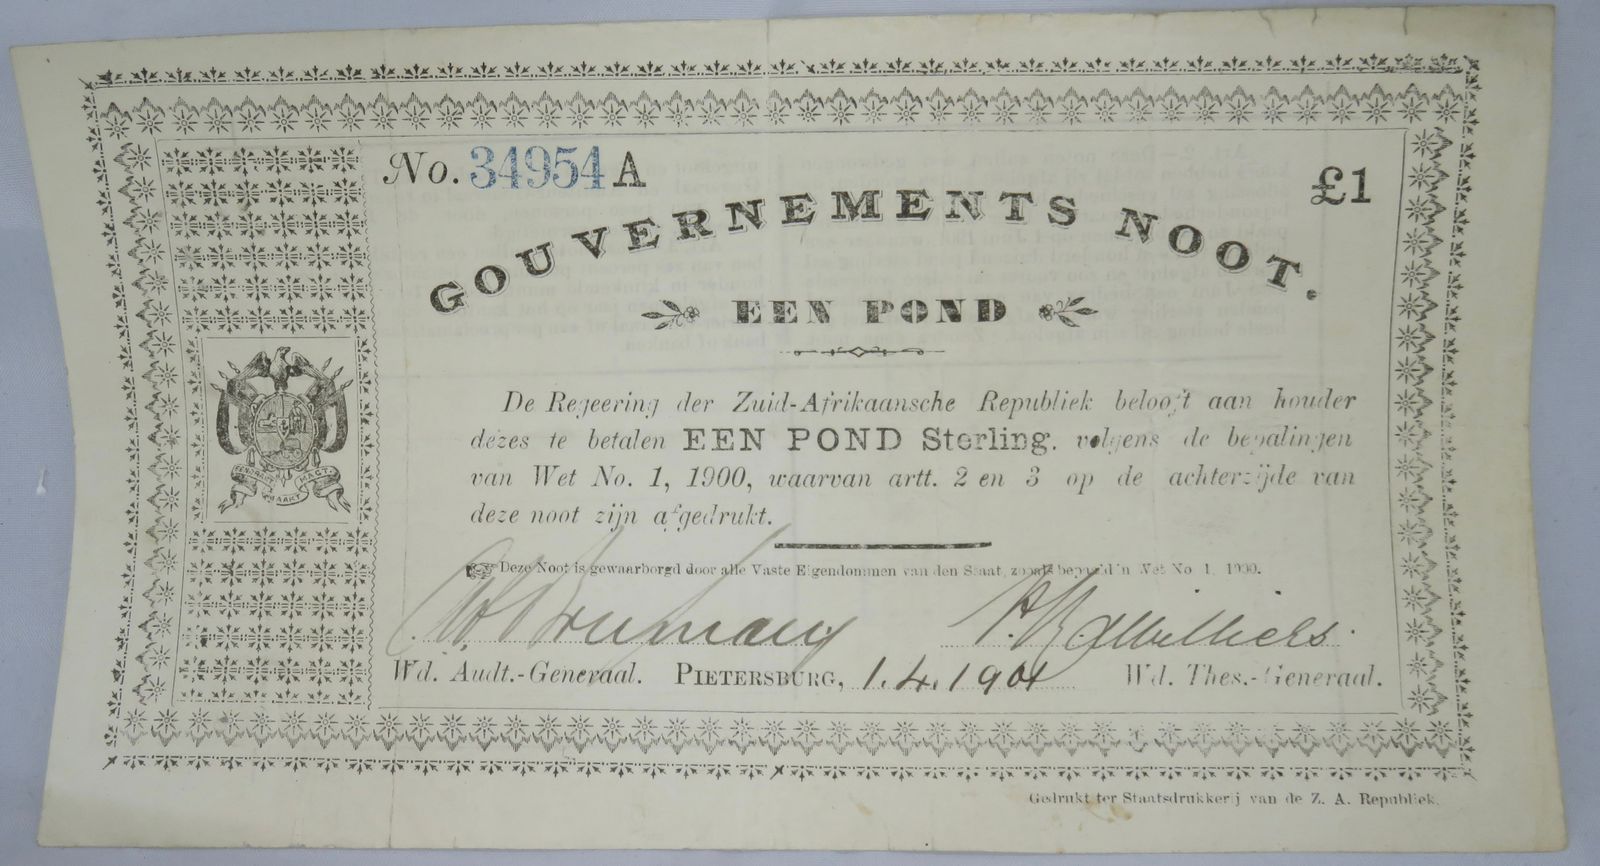 No. 34954 A
£1
GOUVERNEMENTS NOOT.
EEN POND
De Regeering der Zuid-Afrikaansche Republiek belooft aan houder
dezes te betalen EEN POND Sterling. volgens de bepalingen
van Wet No. 1, 1900, waarvan artt. 2 en 3 op de achterzijde van
deze noot zijn afgedrukt.
EENDRAGT MAAKT MAGT
Deze Noot is gewaarborgd door alle Vaste Eigendommen van den Staat, zooals bepaald in Wet No 1, 1900.
Wd. Audt.-Generaal. PIETERSBURG, 1.4.1901 Wd. Thes.-Generaal.
Gedrukt ter Staatsdrukkerij van de Z. A. Republiek.